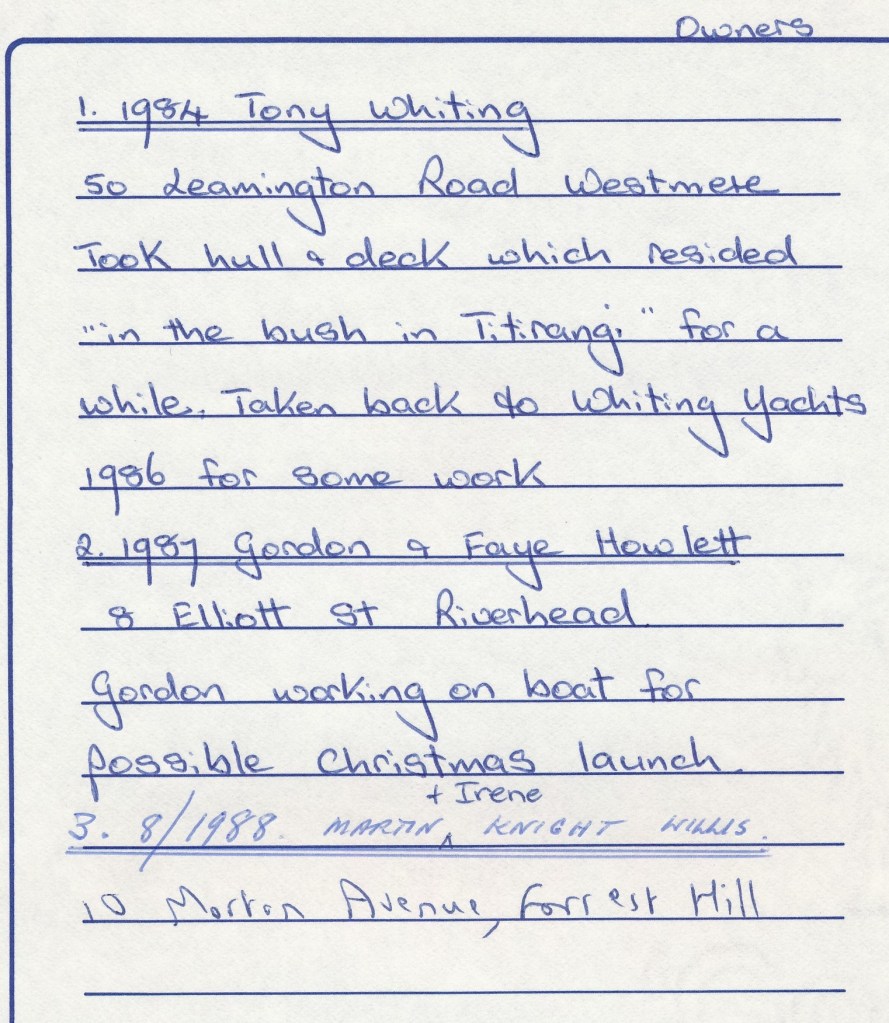 Owners
1. 1984 Tony Whiting
50 Leamington Road Westmere
Took hull & deck which resided
"in the bush in Titirangi" for a
while. Taken back to Whiting Yachts
1986 for some work
2. 1987 Gordon & Faye Howlett
8 Elliott St Riverhead
Gordon working on boat for
possible Christmas launch.
+ Irene
3. 8/1988. MARTIN ^ KNIGHT WILLIS.
10 Morton Avenue, Forrest Hill